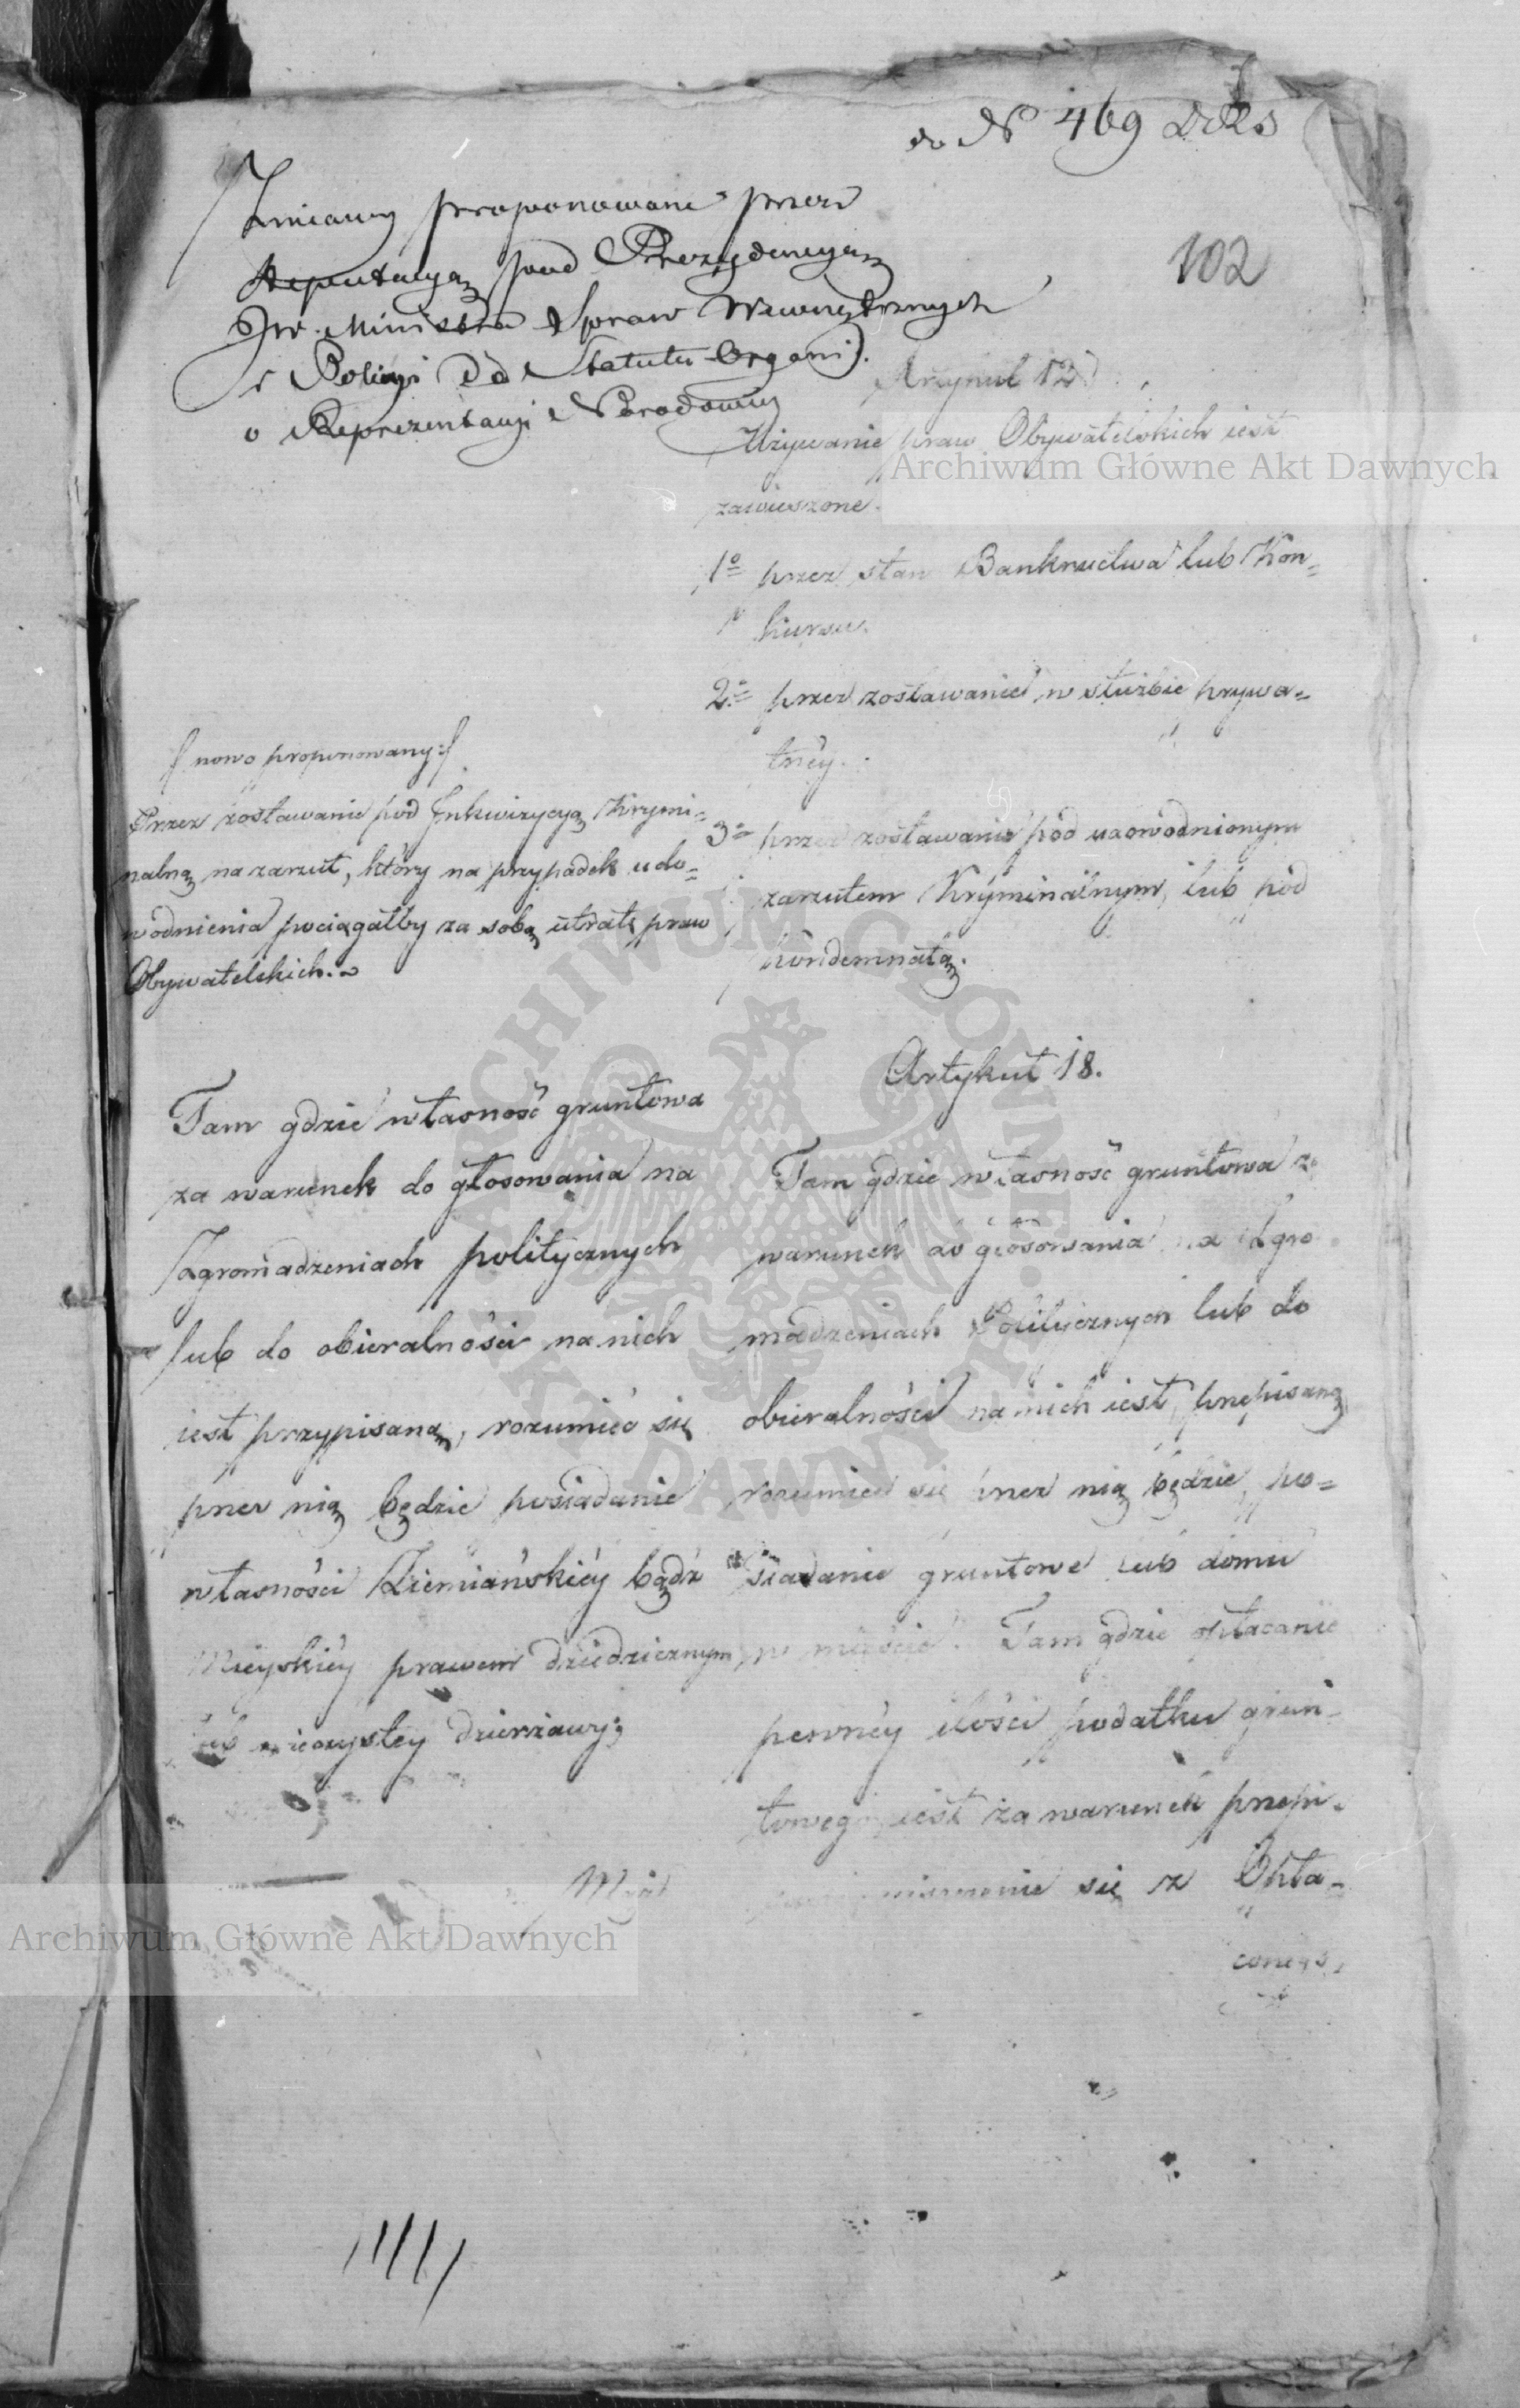 do N 469
102
Zmiany proponowane przez
Deputacyą pod Prezydencyą
JW. Ministra Spraw Wewnętrznych
i Policyi do Statutu Organi:
o Reprezentacyi Narodowey
Artykuł 12
Używanie praw Obywatelskich iest
zawieszone.
1o przez stan Bankructwa lub Kon=
kursu.
2o przez zostawanie w służbie prywa=
tnéy.
3o przez zostawanie pod udowodnionym
zarzutem Kryminalnym, lub pod
kondemnatą.
nowo proponowany:
Przez zostawanie pod Inkwizycyą Krymi=
nalną na zarzut, który na przypadek udo=
wodnienia pociągałby za sobą utratę praw
Obywatelskich.
Artykuł 18.
Tam gdzie własność gruntowa
za warunek do głosowania na
Zgromadzeniach politycznych
lub do obieralności na nich
iest przypisaną, rozumieć się
przez nią będzie posiadanie
własności Ziemiańskiéy bądź
Mieyskiéy prawem dziedzicznym
lub wieczystey dzierżawy;
Tam gdzie własność gruntowa za
warunek do głosowania na Zgro
madzeniach Politycznych lub do
obieralności na nich iest przepisaną
rozumieć się przez nią będzie po=
siadanie gruntowe lub domu
w mieście. Tam gdzie opłacanie
pewnéy ilości podatku grun
towego iest za warunek przepi=
się z Opła=
conego,
Archiwum Główne Akt Dawnych
Archiwum Główne Akt Dawnych
ARCHIWUM GŁÓWNE AKT DAWNYCH